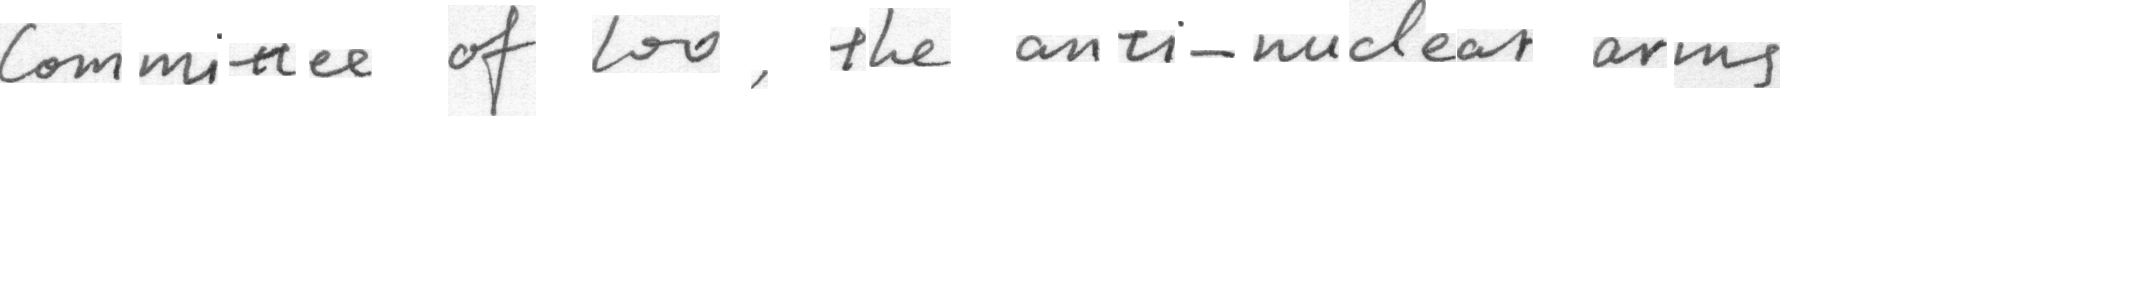 Committee of 100, the anti-nuclear arms